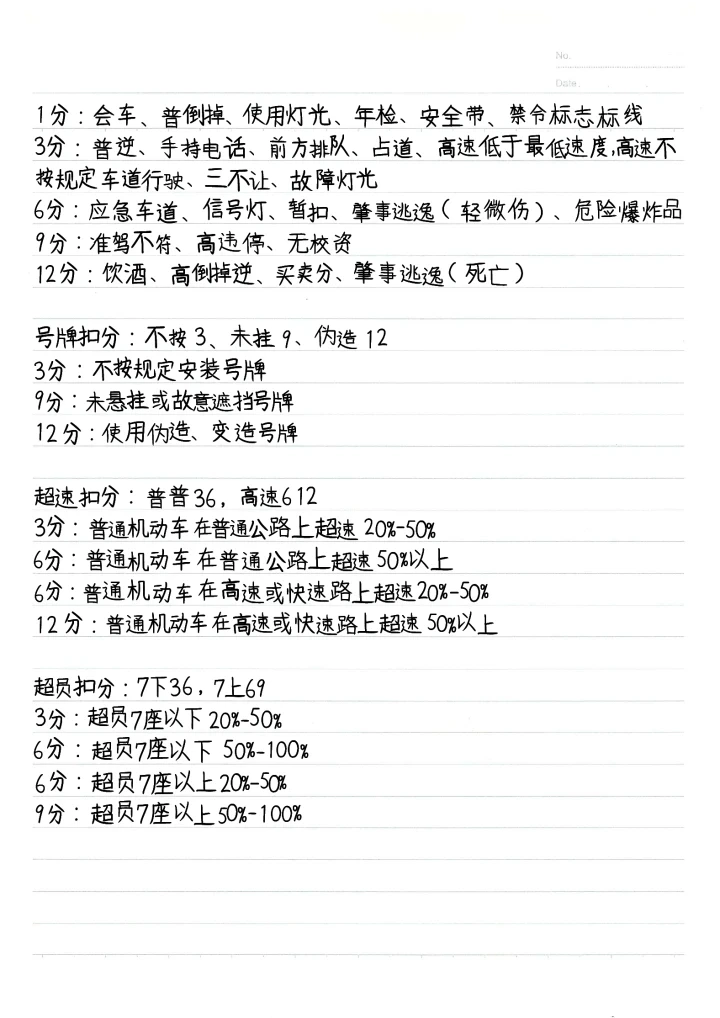 No.
Date.
1分：会车、普倒掉、使用灯光、年检、安全带、禁令标志标线
3分：普逆、手持电话、前方排队、占道、高速低于最低速度,高速不
按规定车道行驶、三不让、故障灯光
6分：应急车道、信号灯、暂扣、肇事逃逸（轻微伤）、危险爆炸品
9分：准驾不符、高违停、无校资
12分：饮酒、高倒掉逆、买卖分、肇事逃逸（死亡）
号牌扣分：不按3、未挂9、伪造12
3分：不按规定安装号牌
9分：未悬挂或故意遮挡号牌
12分：使用伪造、变造号牌
超速扣分：普普36，高速612
3分：普通机动车在普通公路上超速20%-50%
6分：普通机动车在普通公路上超速50%以上
6分：普通机动车在高速或快速路上超速20%-50%
12分：普通机动车在高速或快速路上超速50%以上
超员扣分：7下36，7上69
3分：超员7座以下20%-50%
6分：超员7座以下 50%-100%
6分：超员7座以上20%-50%
9分：超员7座以上50%-100%